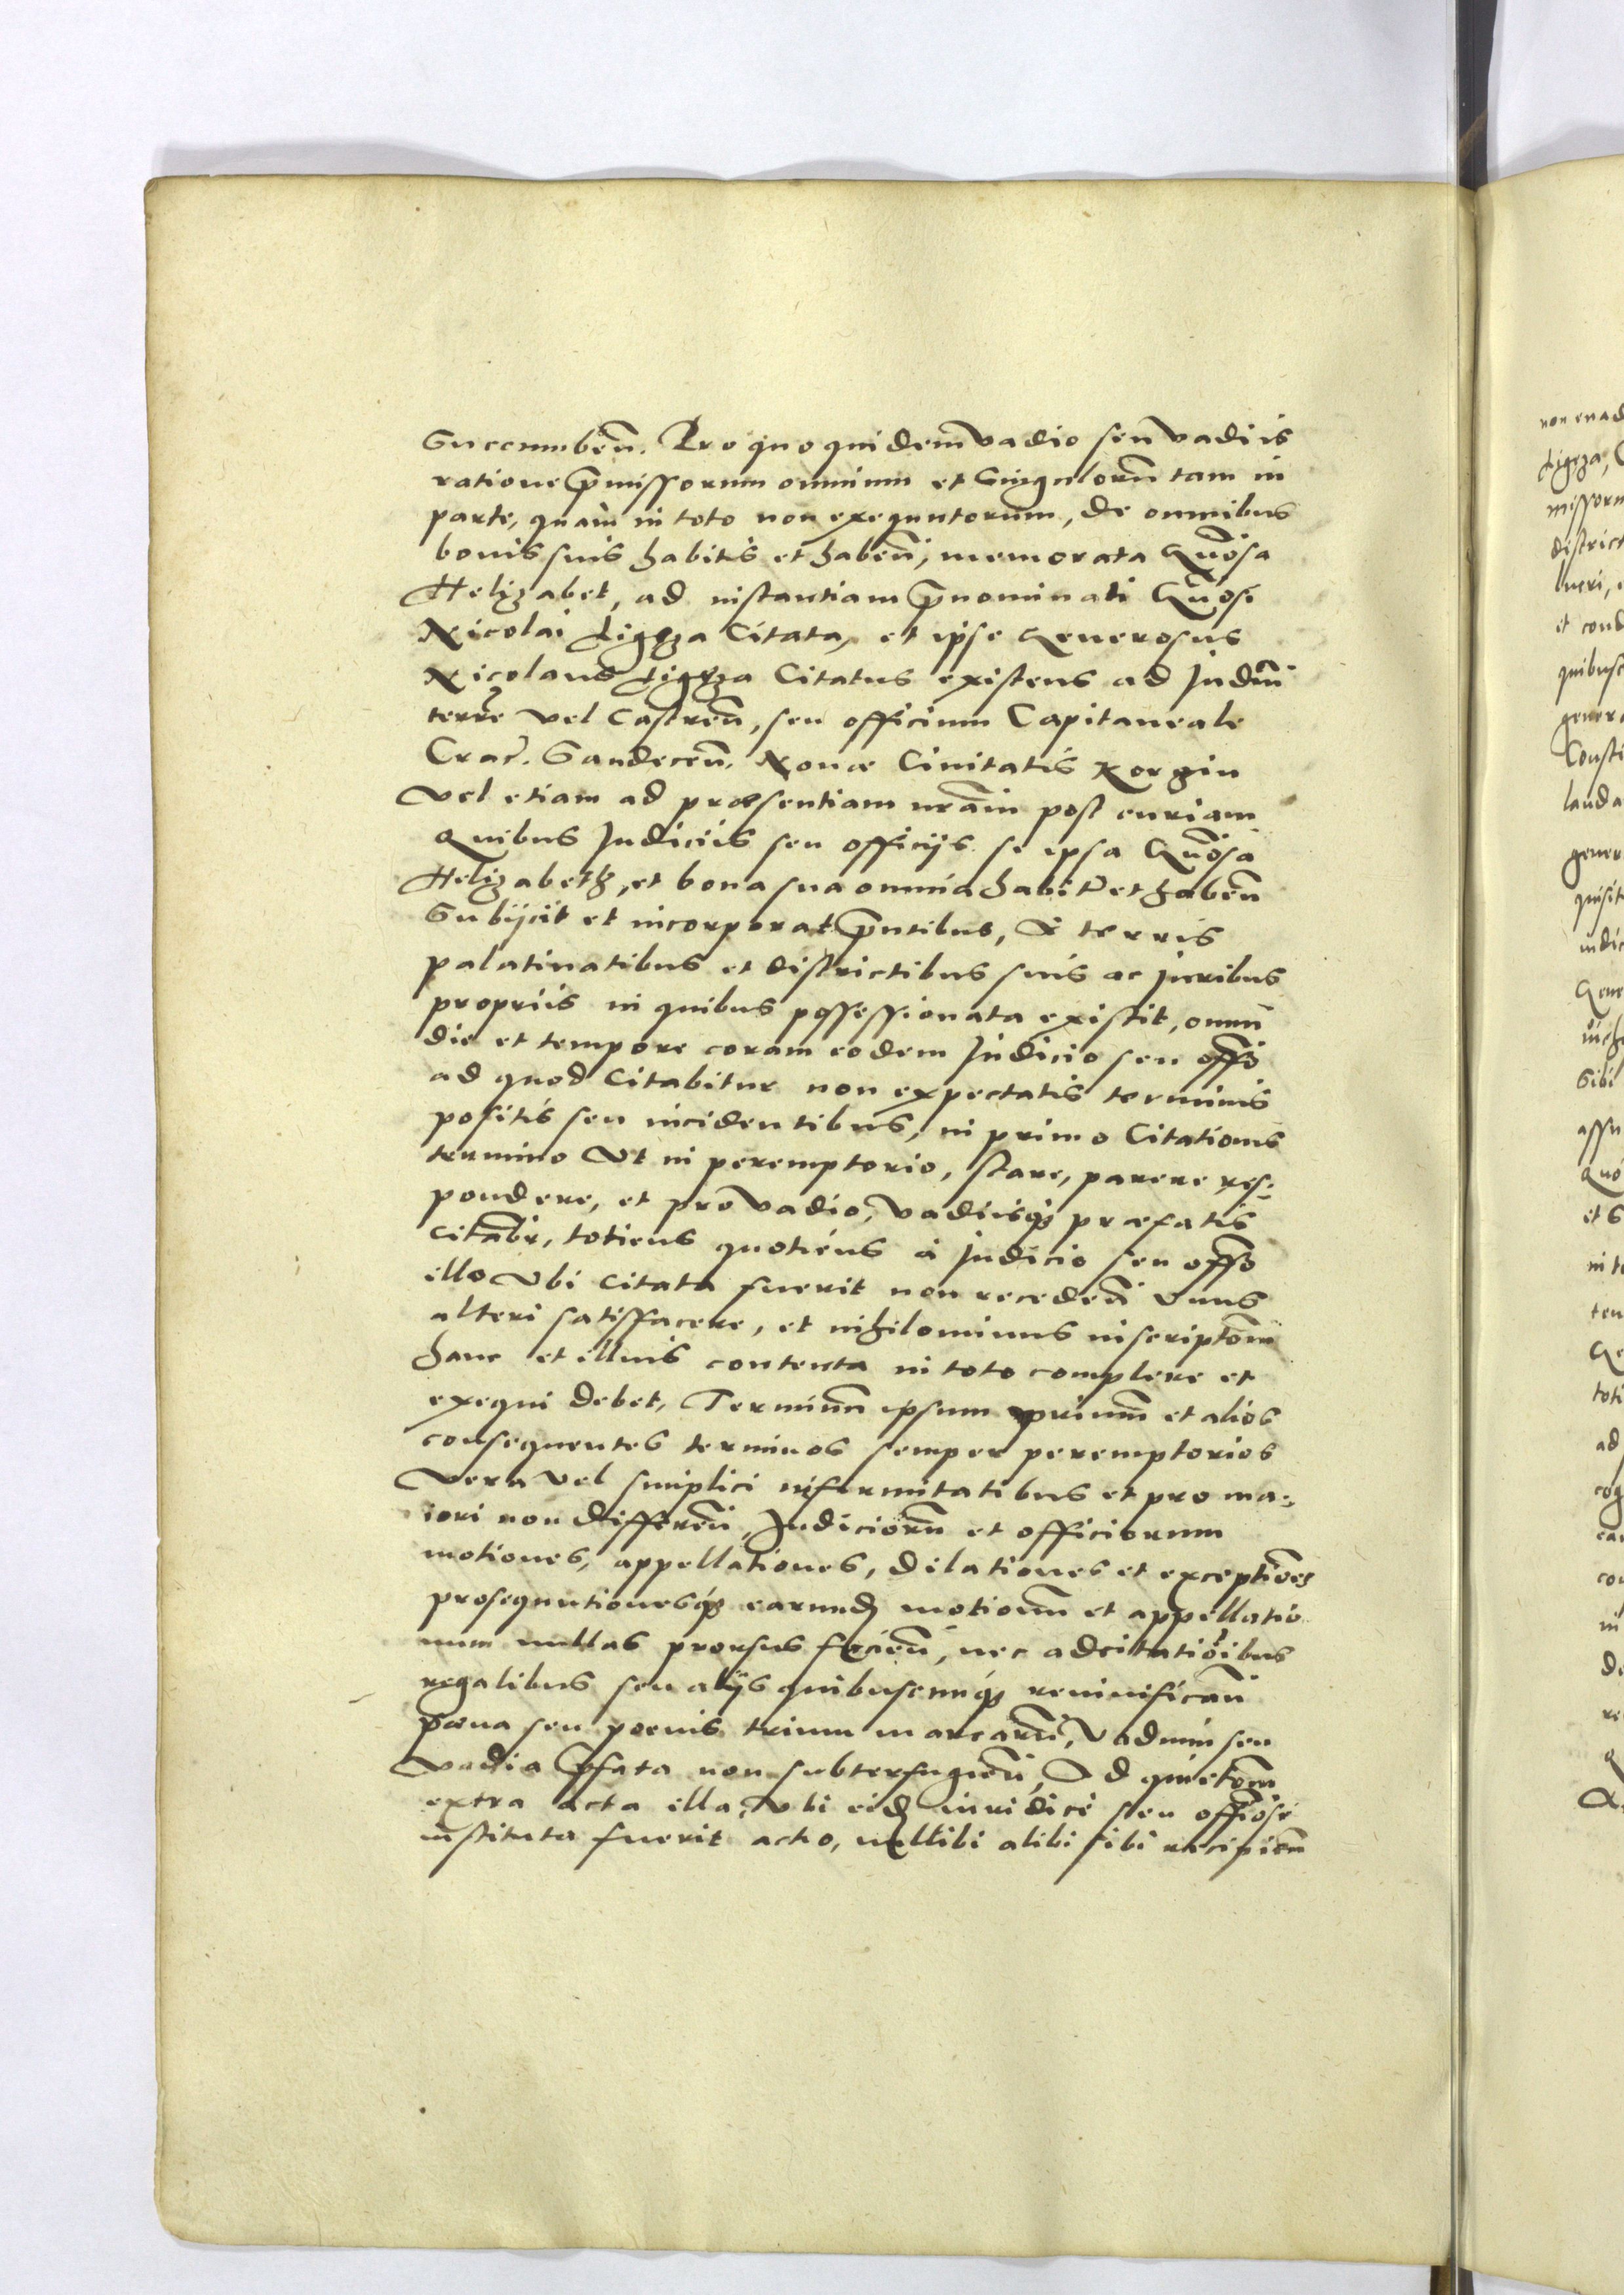 Succumbeñ. Pro quo quidem vadio seu vadiis
ratione p̃missorum omnium et Singulorũ tam in
parte, quam in toto non exequutorum, de omnibus
bonis suis habitis et habeñ, memorata Gñosa
Helizabet, ad instantiam p̃nominati Gñosi
Nicolai Ligęza Citata, et ipse Generosus
Nicolaus Ligęza Citatus existens ad Judiũ
terrẽ vel Castreñ, seu officium Capitaneale
Crac̃. Sandeceñ. Novæ Civitatis Korgin
vel etiam ad præsentiam nr̃am post curiam
Quibus Judiciis seu officiis se ipsa Gñosa
Helizabeth, et bona sua omnia habit̃ et habeñ
Subijcit et incorporat p̃ntibus, A terris
palatinatibus et districtibus suis ac juribus
propriis in quibus possessionata existit, omñ
die et tempore coram eodem Judicio seu offõ
ad quod Citabitur non expectatis terminis
positis seu incidentibus, in primo Citationis
termino Ut in peremptorio, stare, parere res:
pondere, et pro vadio, vadiisq; præfatis
citabr̃, totiens quotiens à judicio seu offõ
illo Ubi citata fuerit non recedeñ Unus
alteri satisfacere, et nihilominus inscriptõm
hanc et illius contenta in toto complere et
exequi debet. Terminũ ipsum primũ et alios
consequentes terminos semper peremptorios
Vera vel simplici infirmitatibus et pro ma:
iori non differeñ, Judiciorũ et officiorum
motiones, appellationes, dilationes et exceptiões
prosequutionesq; earund̃ motionũ et appellatio
num nullas prorsus facieñ, nec adcitatiõibus
regalibus seu aliis quibuscunq; revivificañ
pœna seu pœnis trium marcarũ, Vadium seu
vadia p̃fata non subterfugieñ, Ad quietõem
extra acta illa, Ubi eid̃ iuridice seu offiose
instituta fuerit actio, nullibi alibi sibi recipieñ